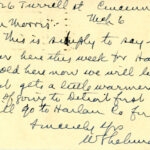 6 Turrell at Cincinn
Mch 6
Morris:-
This is simply to say
here this week for Ha
old here now we will
get a little warmer
of going to Detroit first
ll go to Harlan Co fr
Sincerely yrs
W Thelma